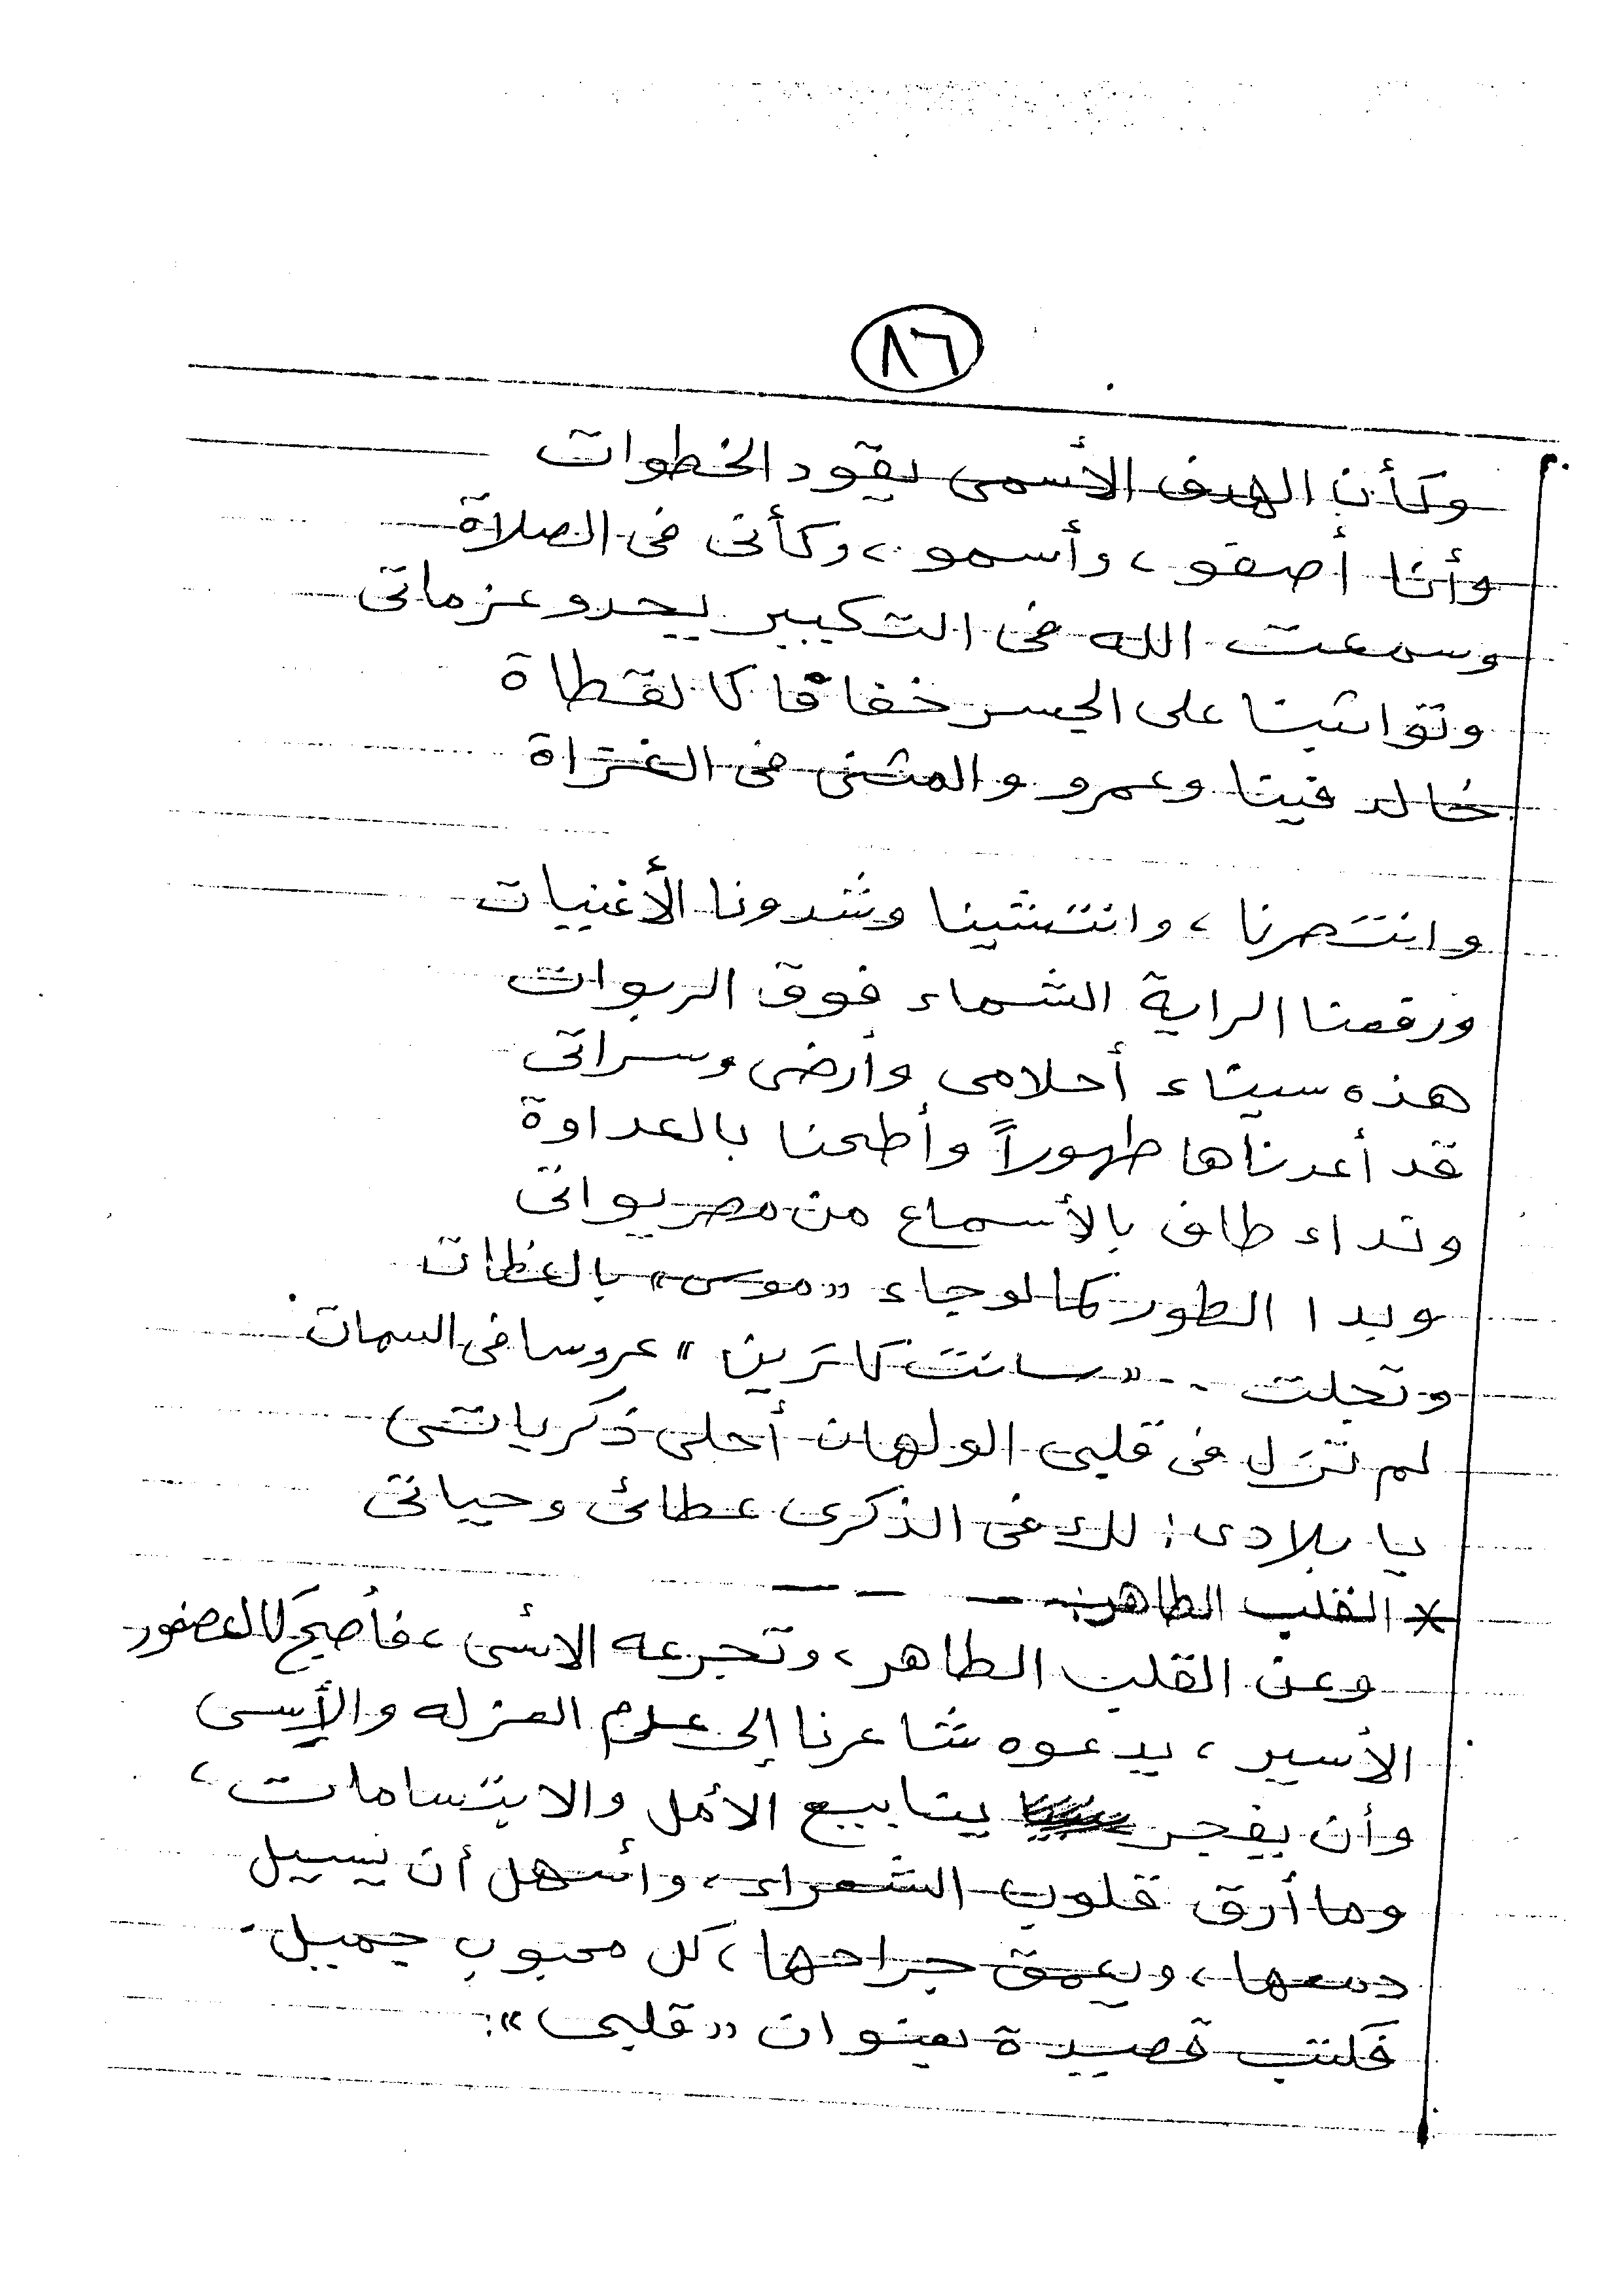 ٨٦
وكأن الهدف الأسمى يقود الخطوات
وأنا أصفو، وأسمو، وكأنى فى الصلاة
وسمعت الله فى التكبير يحدو عزماتى
وتواثبنا على الجسر خفافا كالقطاة
خالد فينا وعمرو والمثنى فى الغزاة
وانتصرنا، وانتشينا وشدونا الأغنيات
ورفعنا الراية الشماء فوق الربوات
هذه سيناء أحلامى وأرضى وسراتى
قد أعدناها طهوراً وأطحنا بالعداوة
ونداء طاف بالأسماع من مصر يواتى
وبدا الطور كما لو جاء «موسى» بالعظات
وتجلت .. «سانت كاترين» عروسا فى السمات
لم تزل فى قلبى الولهان أحلى ذكرياتى
يا بلادى: لك فى الذكرى عطائى وحياتى
* القلب الطاهر:
وعن القلب الطاهر، وتجرعه الأسى، فأصبح كالعصفور
الأسير، يدعوه شاعرنا إلى عدم العزله والأسى
وأن يفجر ينابيع الأمل والابتسامات،
وما أرق قلوب الشعراء، وأسهل أن يسيل
دمعها، ويعمق جراحها، كل محبوب جميل.
فكتب قصيدة بعنوان «قلبى»: